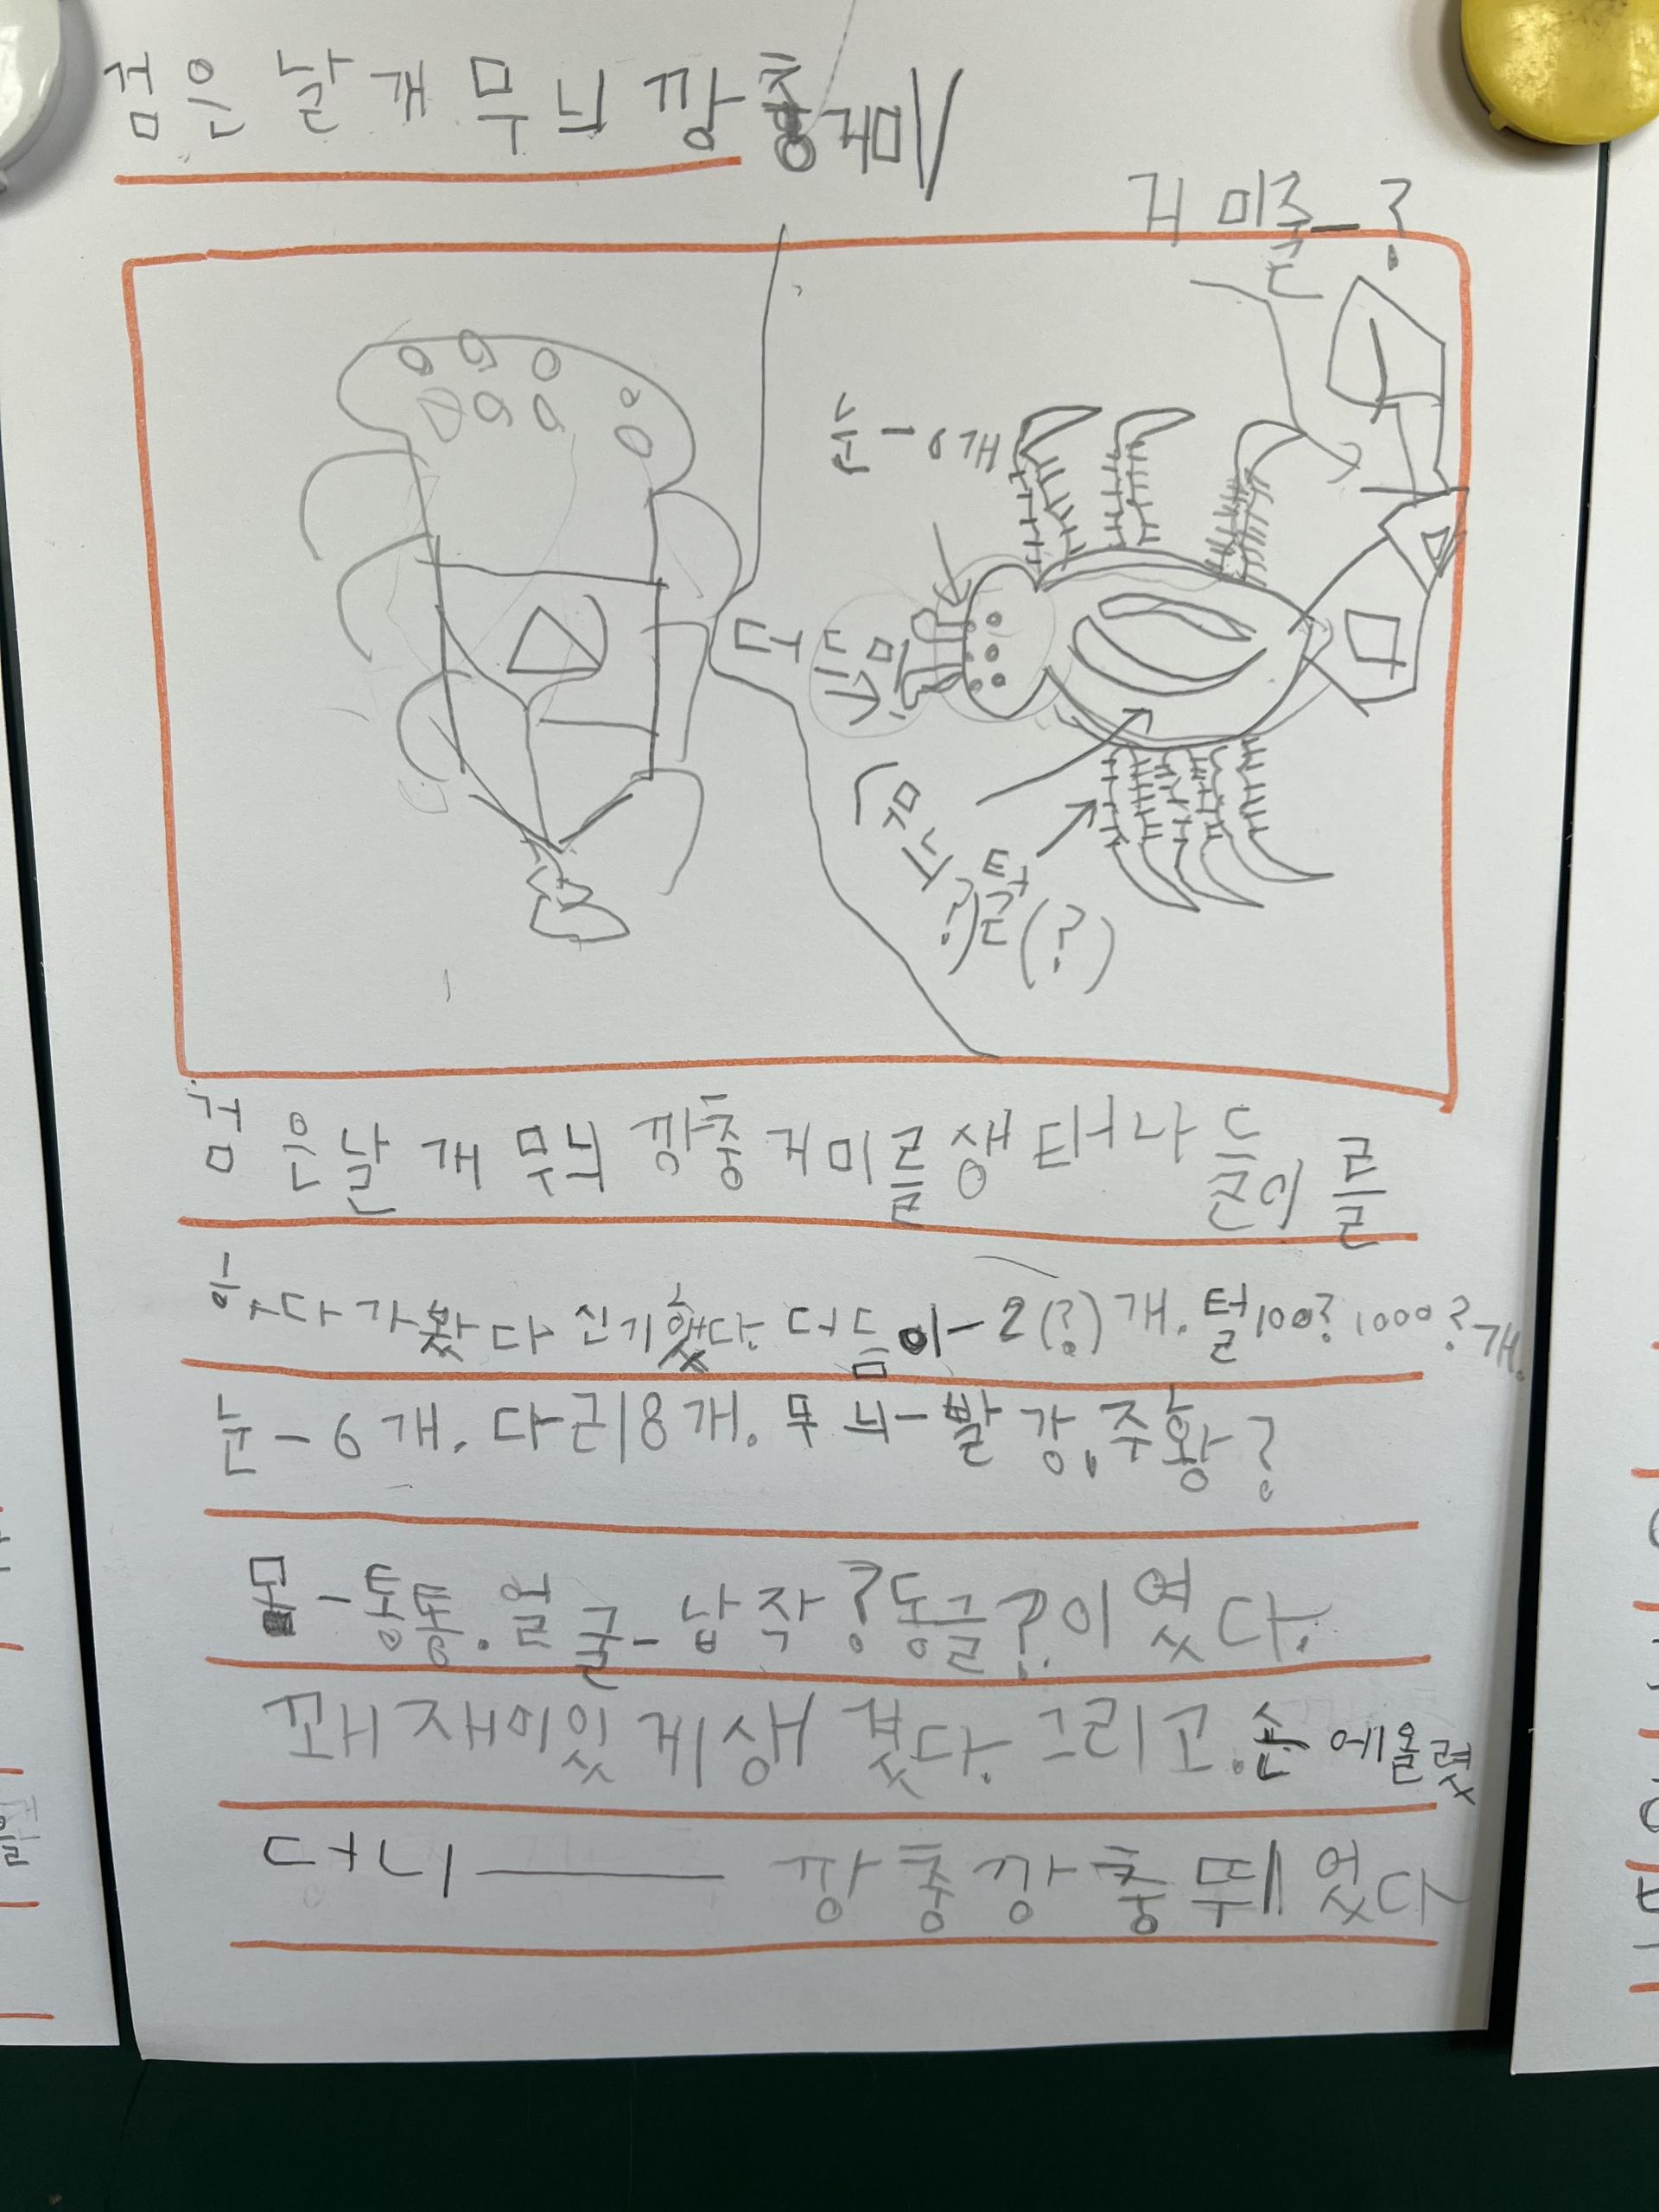 검은 날개 무늬 깡충거미
거미줄-?
눈-6개
더듬이
(몸무늬?)
털(?)
검은날개무늬깡충거미를생태나들이를
하다가봤다신기했다. 더듬이-2(?)개. 털100?1000?개.
눈-6개. 다리8개. 무늬-빨강,주황?
몸-통통. 얼굴-납작?동글?이였다.
꽤재미있게생겼다. 그리고.손에올렸
더니――깡충깡충뛰었다